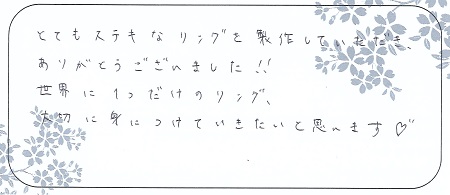 とてもステキなリングを製作していただき、
ありがとうございました!!
世界に1つだけのリング、
大切に身につけていきたいと思います♡